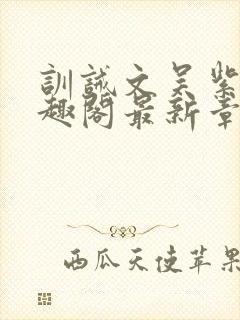 訓誡文吴紫
趣閣最新章
西瓜天使苹果